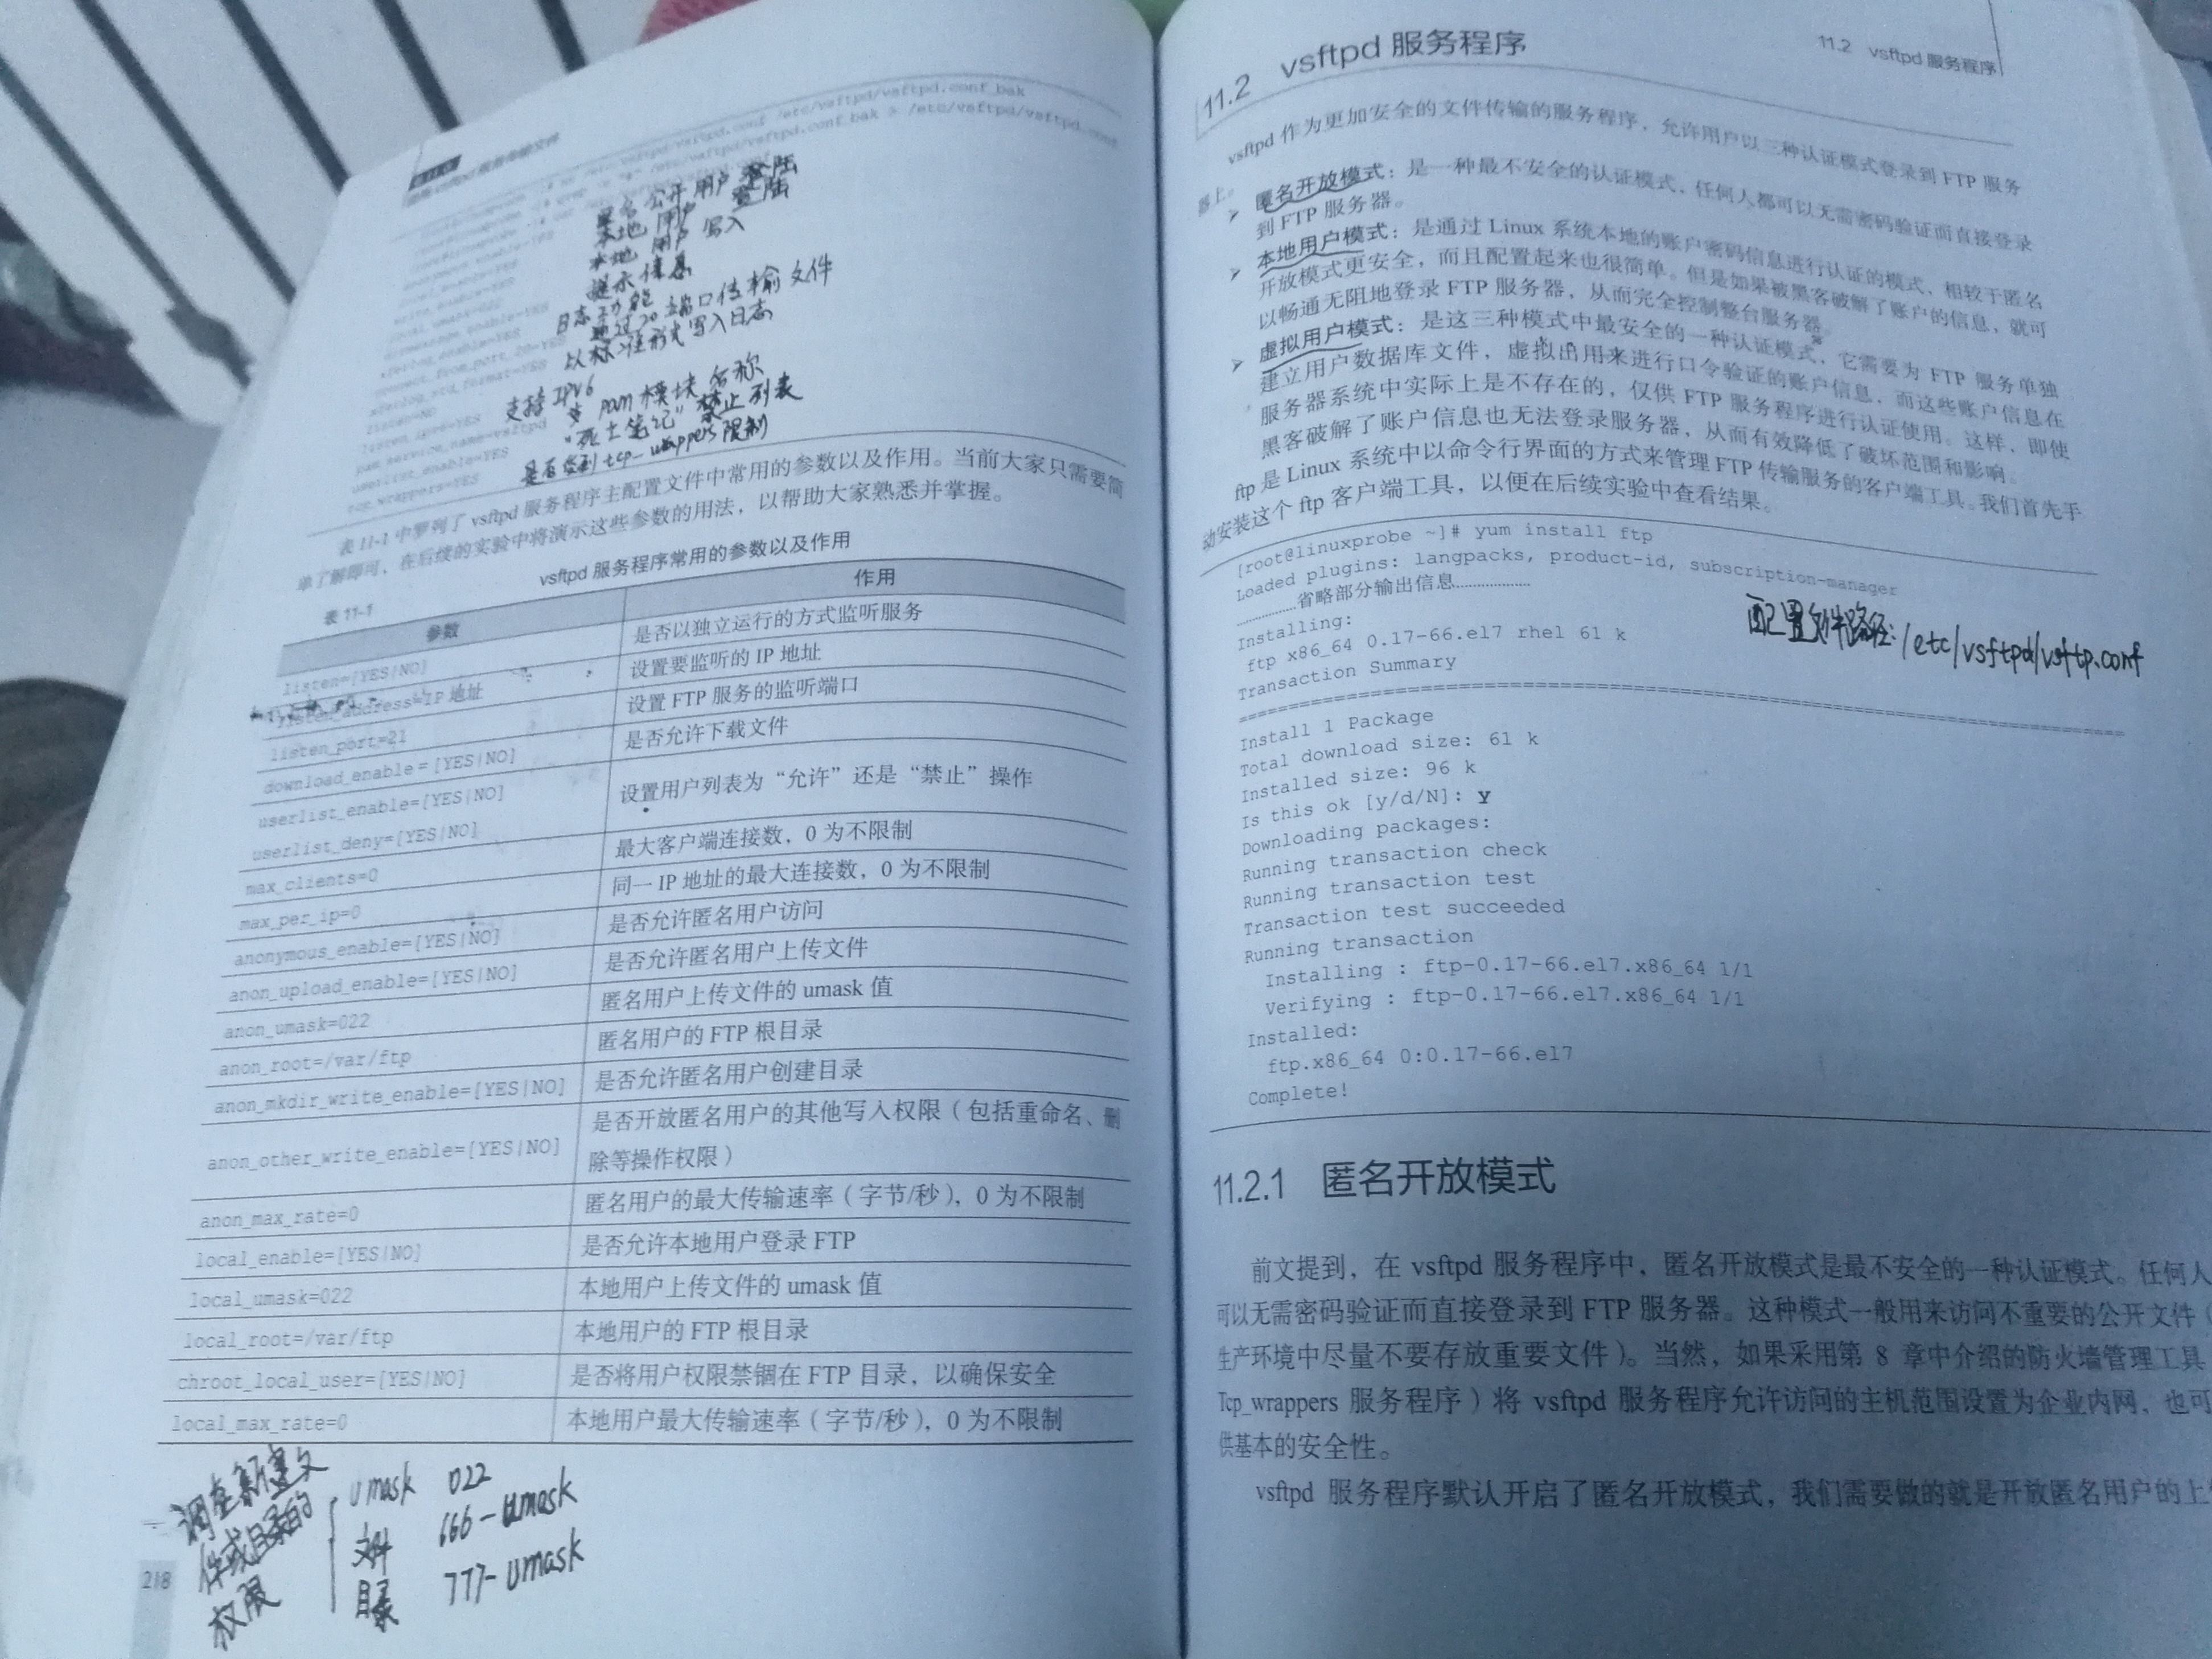 /etc/vsftpd/vsftpd.conf /etc/vsftpd/vsftpd.conf_bak
/etc/vsftpd/vsftpd.conf_bak > /etc/vsftpd/vsftpd.conf
匿名公开用户登陆
本地用户登陆
本地用户写入
提示信息
日志功能
通过20端口传输文件
以标准形式写入日志
支持IPV6
pam模块名称
禁止列表
pam_service_name=vsftpd
userlist_enable=YES
tcp_wrappers=YES
表 11-1 中罗列了 vsftpd 服务程序主配置文件中常用的参数以及作用。当前大家只需要简
单了解即可，在后续的实验中将演示这些参数的用法，以帮助大家熟悉并掌握。
表 11-1 vsftpd 服务程序常用的参数以及作用
参数 作用
listen=[YES|NO] 是否以独立运行的方式监听服务
listen_address=IP 地址 设置要监听的 IP 地址
listen_port=21 设置 FTP 服务的监听端口
download_enable=[YES|NO] 是否允许下载文件
userlist_enable=[YES|NO]
userlist_deny=[YES|NO] 设置用户列表为“允许”还是“禁止”操作
max_clients=0 最大客户端连接数，0 为不限制
max_per_ip=0 同一 IP 地址的最大连接数，0 为不限制
anonymous_enable=[YES|NO] 是否允许匿名用户访问
anon_upload_enable=[YES|NO] 是否允许匿名用户上传文件
anon_umask=022 匿名用户上传文件的 umask 值
anon_root=/var/ftp 匿名用户的 FTP 根目录
anon_mkdir_write_enable=[YES|NO] 是否允许匿名用户创建目录
anon_other_write_enable=[YES|NO] 是否开放匿名用户的其他写入权限（包括重命名、删
除等操作权限）
anon_max_rate=0 匿名用户的最大传输速率（字节/秒），0 为不限制
local_enable=[YES|NO] 是否允许本地用户登录 FTP
local_umask=022 本地用户上传文件的 umask 值
local_root=/var/ftp 本地用户的 FTP 根目录
chroot_local_user=[YES|NO] 是否将用户权限禁锢在 FTP 目录，以确保安全
local_max_rate=0 本地用户最大传输速率（字节/秒），0 为不限制
调整新建文
件或目录的
权限
umask 022
文件 666-umask
目录 777-umask
218
11.2 vsftpd 服务程序
11.2 vsftpd 服务程序
vsftpd 作为更加安全的文件传输的服务程序，允许用户以三种认证模式登录到 FTP 服务
器上。
➢ 匿名开放模式：是一种最不安全的认证模式，任何人都可以无需密码验证而直接登录
到 FTP 服务器。
➢ 本地用户模式：是通过 Linux 系统本地的账户密码信息进行认证的模式，相较于匿名
开放模式更安全，而且配置起来也很简单。但是如果被黑客破解了账户的信息，就可
以畅通无阻地登录 FTP 服务器，从而完全控制整台服务器。
➢ 虚拟用户模式：是这三种模式中最安全的一种认证模式，它需要为 FTP 服务单独
建立用户数据库文件，虚拟出用来进行口令验证的账户信息，而这些账户信息在
服务器系统中实际上是不存在的，仅供 FTP 服务程序进行认证使用。这样，即使
黑客破解了账户信息也无法登录服务器，从而有效降低了破坏范围和影响。
ftp 是 Linux 系统中以命令行界面的方式来管理 FTP 传输服务的客户端工具。我们首先手
动安装这个 ftp 客户端工具，以便在后续实验中查看结果。
[root@linuxprobe ~]# yum install ftp
Loaded plugins: langpacks, product-id, subscription-manager
………………省略部分输出信息………………
Installing:
ftp x86_64 0.17-66.el7 rhel 61 k
Transaction Summary
================================================================================
Install 1 Package
Total download size: 61 k
Installed size: 96 k
Is this ok [y/d/N]: y
Downloading packages:
Running transaction check
Running transaction test
Transaction test succeeded
Running transaction
Installing : ftp-0.17-66.el7.x86_64 1/1
Verifying : ftp-0.17-66.el7.x86_64 1/1
Installed:
ftp.x86_64 0:0.17-66.el7
Complete!
配置文件路径:/etc/vsftpd/vsftp.conf
11.2.1 匿名开放模式
前文提到，在 vsftpd 服务程序中，匿名开放模式是最不安全的一种认证模式。任何人
可以无需密码验证而直接登录到 FTP 服务器。这种模式一般用来访问不重要的公开文件（
生产环境中尽量不要存放重要文件）。当然，如果采用第 8 章中介绍的防火墙管理工具
Tcp_wrappers 服务程序）将 vsftpd 服务程序允许访问的主机范围设置为企业内网，也可
供基本的安全性。
vsftpd 服务程序默认开启了匿名开放模式，我们需要做的就是开放匿名用户的上